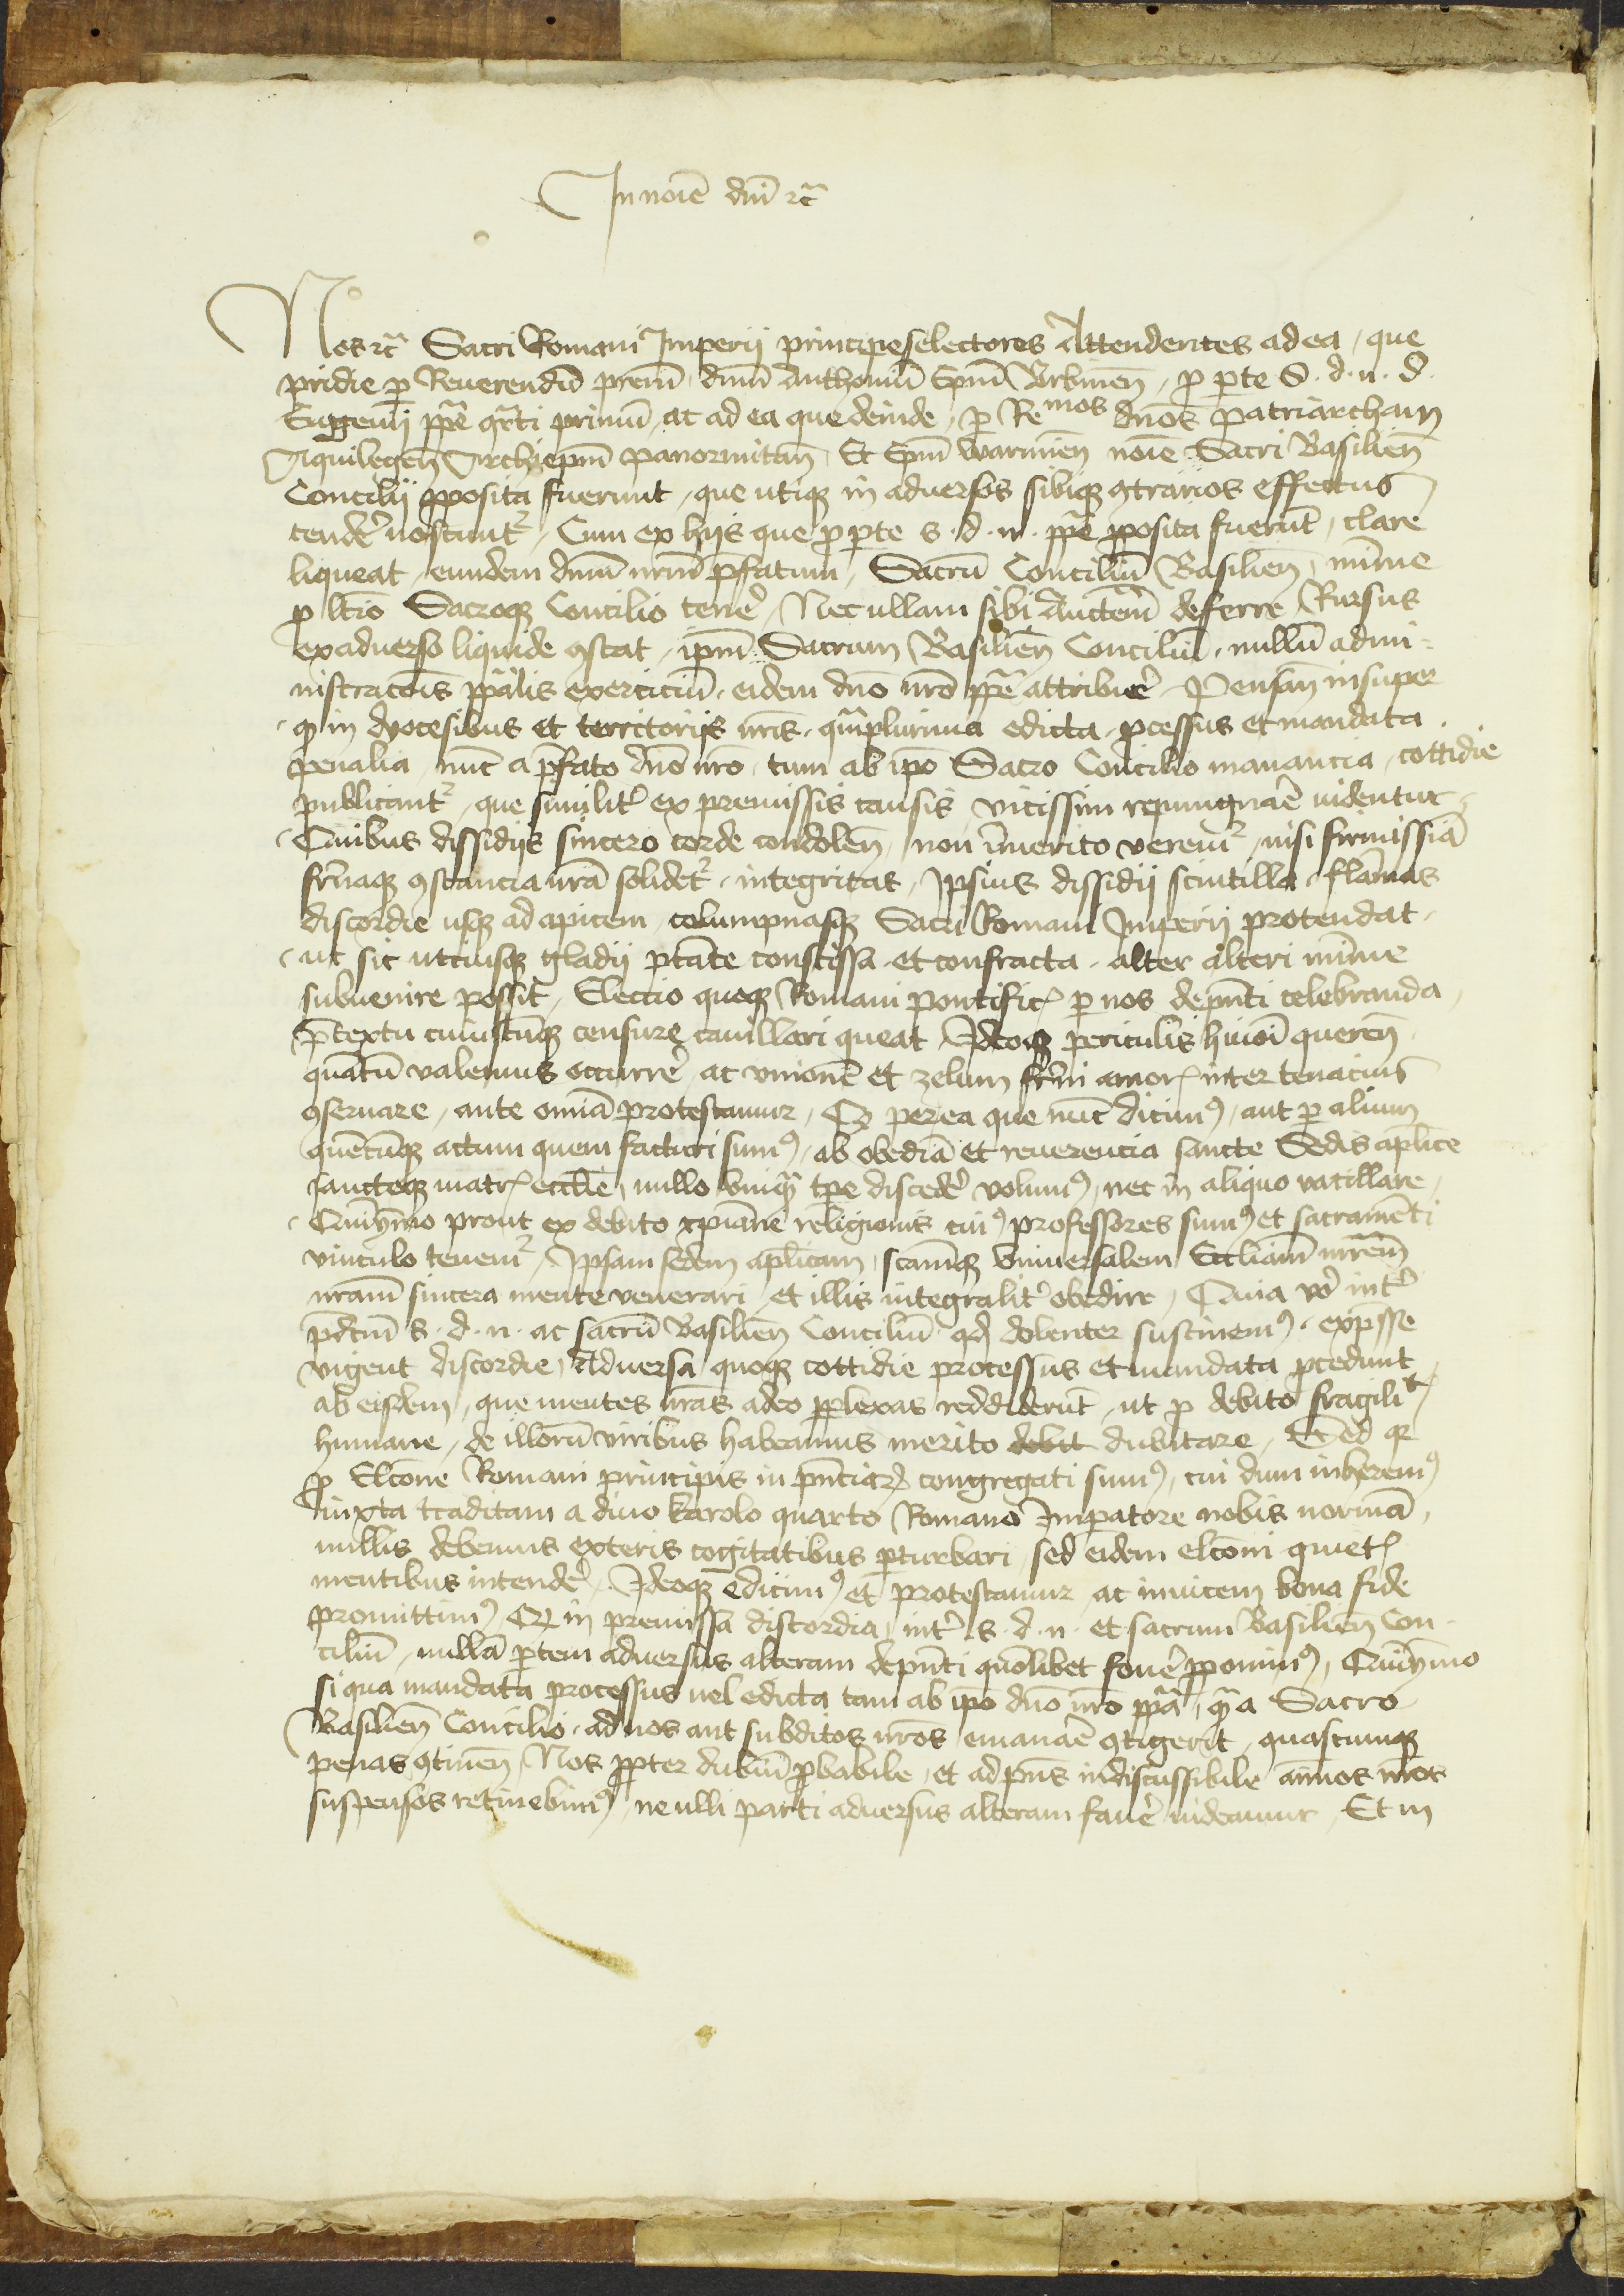 In noīe dn̄i ꝛc̃
Nos ꝛc̃ Sacri Romani Imperij principes electores Attendentes ad ea / que
pridie ꝑ Reuerendū pr̄em / dn̄m Anthoniū Ep̄m Vrbineñ / ꝓ ꝑte S. d. n. D.
Eugenij pp̄e qr̄ti primū / ac ad ea que deinde / ꝑ Remos dn̄os Patriarcham
Aquilegeñ Archiep̄m Panormitañ / Et Ep̄m Warmieñ noīe Sacri Basilieñ
Concilij ꝓposita fuerunt / que utiqꝫ in aduersos sibiqꝫ ꝯtrarios effectus
tendẽ noscunt᷑ / Cum ex hijs que ꝓ ꝑte s. d. n. pp̄e ꝓposita fuerūt / clare
liqueat / eundem dn̄m nr̄m p̄fatum / Sacrū Conciliū Basilieñ / mīme
ꝓ lt̄io Sacroqꝫ Concilio tenẽ / Nec ullam sibi Auctem̄ deferre / Rursus
ex aduerso liquide ꝯstat / ip̄m Sacrum Basilieñ Conciliū / nullū admi-
nistrac̄ois pp̄alis exerciciū / eidem dn̄o nr̄o pp̄e attribuẽ / Pensañ insuper
/ ꝙ in dyocesibus et territorijs nr̄is / qm̄plurima edicta / ꝓcessus et mandata
penalia / nūc a p̄fato dn̄o nr̄o / tum ab ip̄o Sacro Concilio manancia / cottidie
publicant᷑ / que similit̉ ex premissis causis / vicissim repungnar̄e uidentur /
/ Quibus dissidijs sincero corde condoleñ / non ī̄merito verem᷑ / nisi firmissīa
fr̄naqꝫ ꝯstancia nr̄a solidet᷑ / integritas / Ipsius dissidij scintilla / flāmas
discordie usqꝫ ad apicem / columpnasqꝫ Sacri Romani Imperij protendat /
/ ut sic utriusqꝫ gladij ptāte conscissa / et confracta / alter alteri mīme
subuenire possit / Electio quoqꝫ Romani pontific̨ ꝑ nos dep̄nti celebranda /
P̄textu cuiuscūqꝫ censure cauillari queat / Ideoqꝫ periculis huiōi quereñ
quātū valemus occurrẽ / ac vnionē et zelum fr̄ni amor̨ inter tenacius
ꝯseruare / ante om̄ia protestamur / Qꝫ per ea que nūc dicimꝰ / aut ꝑ alium
quēcūqꝫ actum quem facturi sumꝰ / ab obediā et reuerencia sancte Sedis ap̄lice
sancteqꝫ matr̨ eccl̄ie / nullo vnqm̄ tp̄e discedẽ volumꝰ / nec in aliquo vacillare /
/ Quinymo prout ex debito xp̄iane religionis cuiꝰ professores sumꝰ et sacramēti
vinculo tenem᷑ / Ipsam sedem ap̄licam / sctamqꝫ vniuersalem Eccliam̄ mr̄em
nr̄am̄ sincera mente venerari / et illis integralit̉ obedire / Quia v̉o int̉
p̄dc̄m s. d. n. ac sacrū Basilieñ Conciliū / qd̄ dolenter sustinemꝰ / exp̄sse
vigent discordie / Aduersa quoqꝫ cottidie processus et mandata ꝓcedunt
ab eisdem / que mentes nr̄as adeo ꝑplexas reddiderūt / ut ꝓ debito fragilitᷓ
humane / de illorū viribus habeamus merito debit dubitare / Sed qꝛ
ꝓ Elc̄one Romani principis in p̄nciaꝝ congregati sumꝰ / cui dum inheremꝰ
iuxta traditam a diuo Karolo quarto Romano Imꝑatore nobis normā /
nullis debemus exteris cogitatibus ꝑturbari / sed eidem elc̄oni quiet̨
mentibus intendẽ / Ideoqꝫ edicimꝰ et protestamur ac inuicem bona fide
promittimꝰ Qꝫ in premissa discordia / int̉ s. d. n. et sacrum Basilieñ Con-
ciliū / nullā ꝑtem aduersus alteram dep̄nti quōlibet fouẽ ꝓponimꝰ / Quinymo
si qua mandata processus uel edicta tam ab ip̄o dn̄o nr̄o pp̄a / qm̄ a Sacro
Basilieñ Concilio / ad nos aut subditos nr̄os / emanar̄e ꝯtigerit / quascumqꝫ
penas ꝯtineñ / Nos ꝓpter dubiū ꝓbabile / et ad p̄ns indiscussibile aīmos nr̄os
suspensos retinebimꝰ / ne ulli parti aduersus alteram fauẽ uideamur / Et in